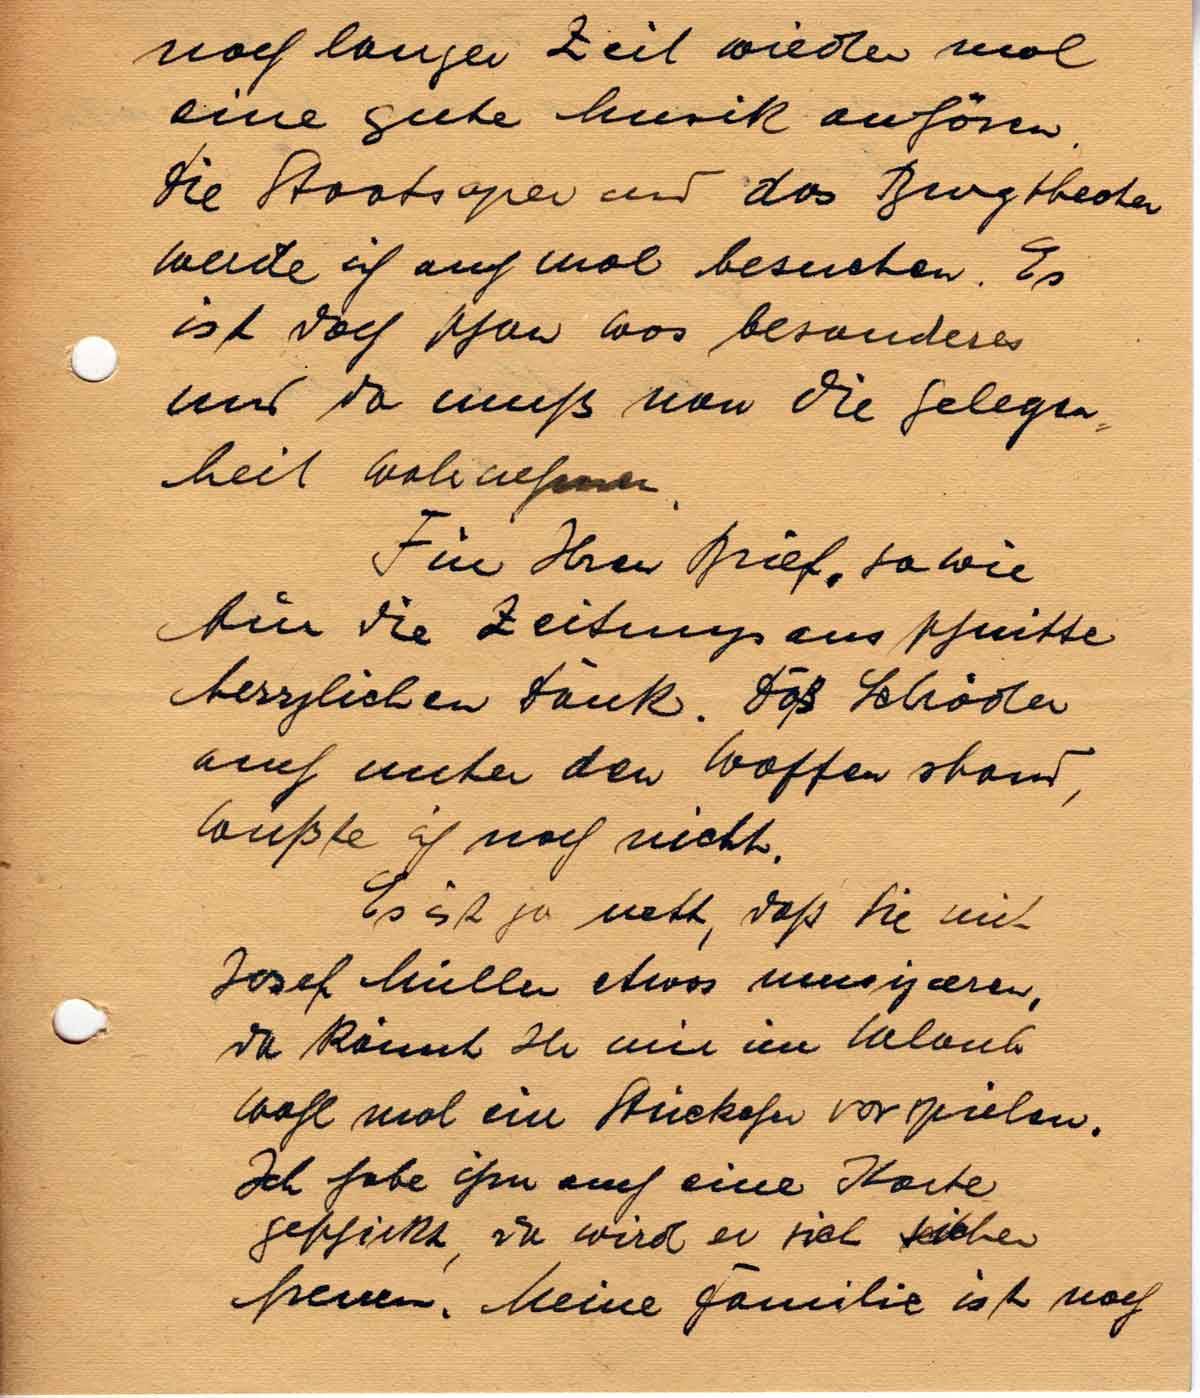 nach langer Zeit wieder mal
eine gute Musik anhören.
Die Staatsoper und das Burgtheater
werde ich auch mal besuchen. Es
ist doch schon was besonderes
und da muß man die Gelegen=
heit wahrnehmen.
Für Ihren Brief, sowie
für die Zeitungsausschnitte
herzlichen Dank. Daß Schröder
auch unter den Waffen stand,
wußte ich noch nicht.
Es ist ja nett, daß Sie mit
Josef Müller etwas musizieren,
da könnt Ihr mir im Urlaub
wohl mal ein Stückchen vorspielen.
Ich habe ihm auch eine Karte
geschickt, da wird er sich sicher
freuen. Meine Familie ist noch